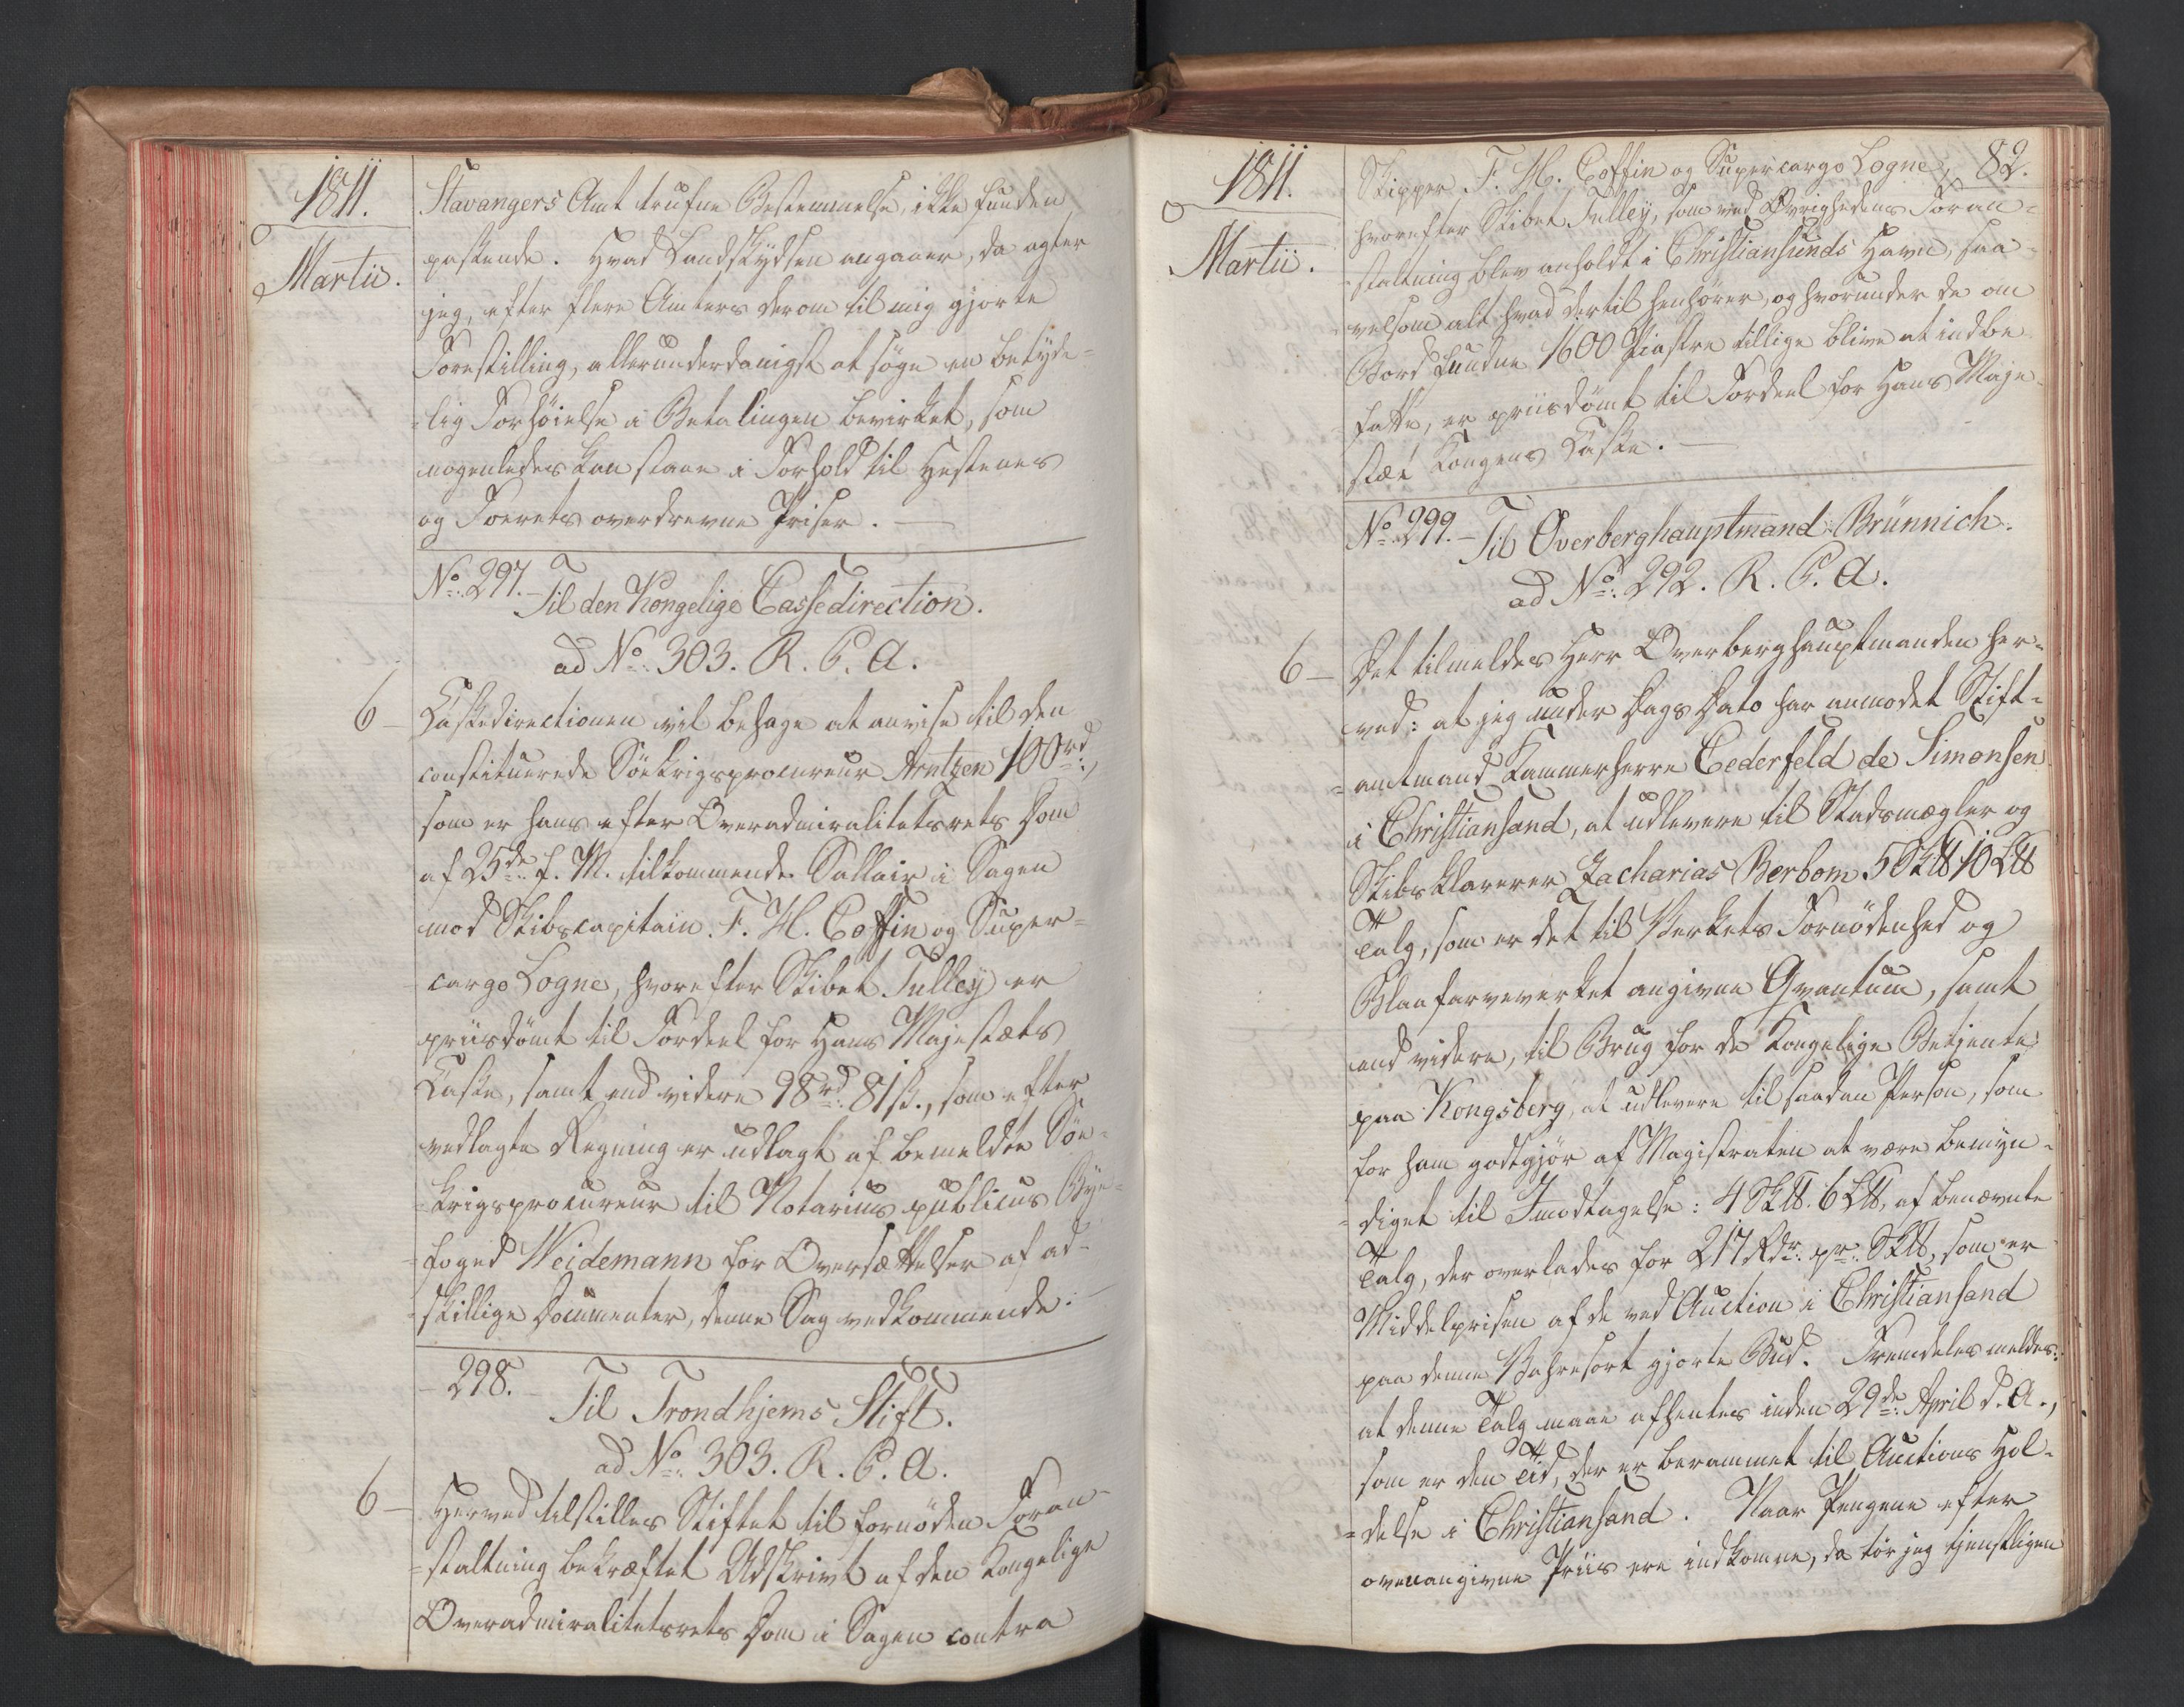 1811.
Martii.
Stavangers Amt trufne Bestemmelse, ikke funden
passende. Hvad Landskydsen angaaer, da agter
jeg, efter flere Amters derom til mig gjorte
Forestilling, allerunderdanigst at søge en betyde-
-lig Forhøielse i Betalingen bevirket, som
nogenledes kan staae i Forhold til Hestenes
og Foerets overdrevne Priser. —
No. 297. – Til den Kongelige Cassedirection.
ad No. 303. R. C. A.
6 – Cassedirectionen vil behage at anvise til den
constituerede Søekrigsprocureur Arntzen 100 rd.,
som er hans efter Overadmiralitetsrets Dom
af 25de f. M. tilkommende Sallair i Sagen
mod Skibscapitain F. H. Coffin og Super-
cargo Logne, hvorefter Skibet Tulley er
priisdømt til Fordeel for Hans Majestæts
Casse, samt end videre 98 rd. 81 s., som efter
vedlagte Regning er udlagt af bemeldte Søe-
-krigsprocureur til Notarius publicus Bye-
-foged Weidemann for Oversættelser af ad-
-skillige Documenter, denne Sag vedkommende. –
– 298. – Til Trondhjems Stift.
ad No. 303. R. C. A.
6 – Herved tilstilles Stiftet til fornøden Foran-
-staltning bekræftet Udskrivt af den Kongelige
Overadmiralitetsrets Dom i Sagen contra
1811.
Martii.
82.
Skipper F. H. Coffin og Supercargo Logne,
hvorefter Skibet Tulley, som ved Øvrighedens Foran-
-staltning blev anholdt i Christiansunds Havn, saa-
-velsom alt hvad dertil henhører, og hvorunder de om
Bord fundne 1600 Piastre tillige blive at indbe-
-fatte, er priisdømt til Fordeel for Hans Maje-
stæt Kongens Casse. —
No. 299. – Til Overberghauptmand Brünnich.
ad No. 292. R. C. A.
6 – Det tilmeldes Herr Overberghauptmanden her-
ved: at jeg under Dags Dato har anmodet Stift-
-amtmand Kammerherre Cederfeld de Simonsen
i Christiansand, at udlevere til Stadsmægler og
Skibsklarerer Zacharias Berbom 5 Sk℔ 10 L℔
Talg, som er det til Værkets Fornødenhed og
Blaafarveværket angivne Qvantum, samt
end videre, til Brug for de Kongelige Betjente
paa Kongsberg, at udlevere til saadan Person, som
for ham godtgjør af Magistraten at være bemyn-
-diget til Imodtagelse: 4 Sk℔. 6 L℔. af benævnte
Talg, der overlades for 217 Rdr. pr. Sk℔, som er
Middelprisen af de ved Auction i Christiansand
paa denne Vahresort gjorte Bud. Fremdeles meldes:
at denne Talg maae afhentes inden 29de April d. A.,
som er den Tid, der er berammet til Auctions Hol-
-delse i Christiansand. Naar Pengene efter
ovenangivne Priis ere indkomne, da tør jeg tjenstligen